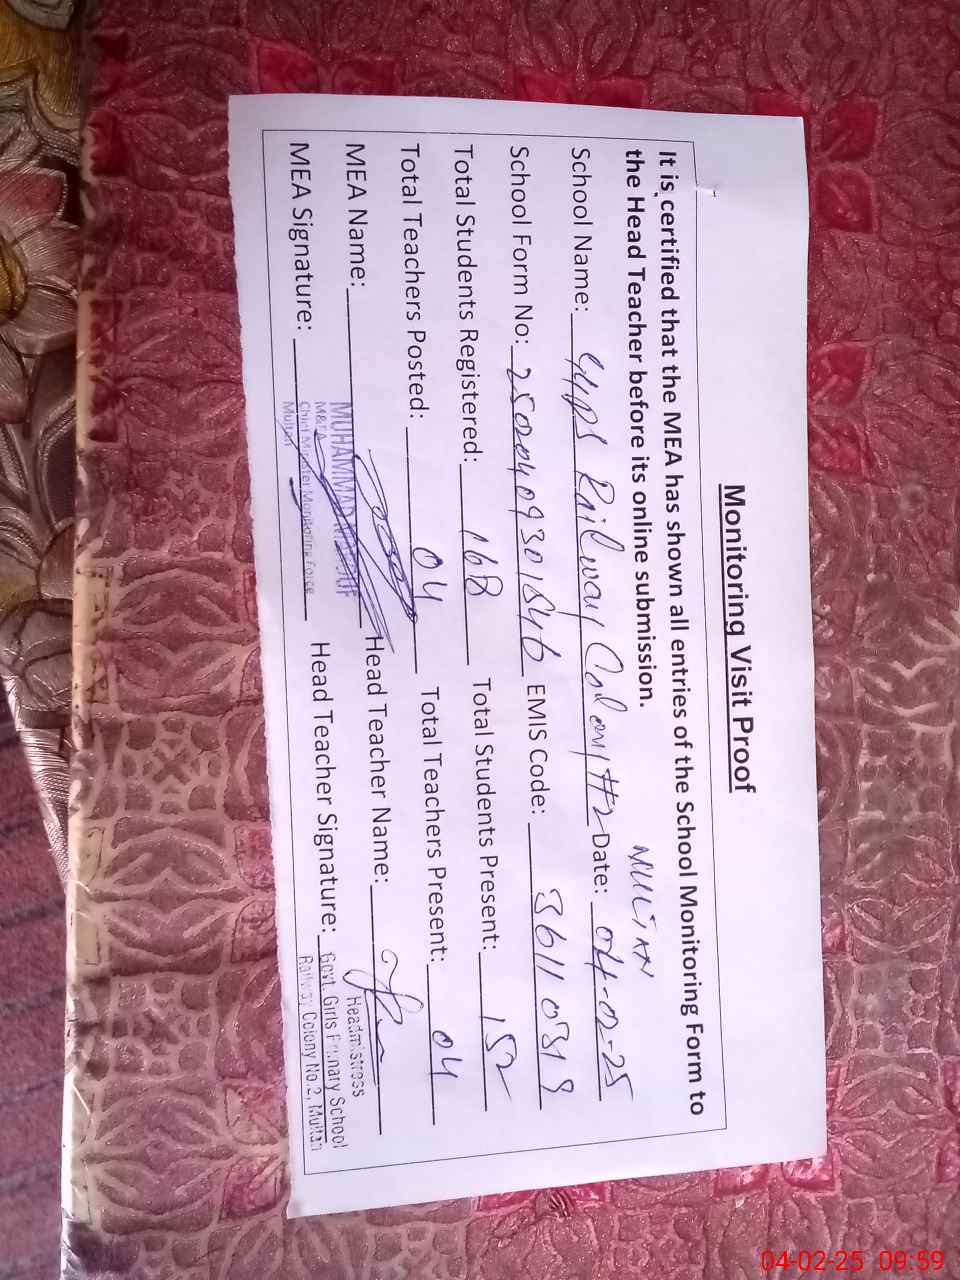 Monitoring Visit Proof
It is certified that the MEA has shown all entries of the School Monitoring Form to
the Head Teacher before its online submission.
MULTAN
School Name: GGPS Railway Colony #2 Date: 04-02-25
School Form No: 2500409301546 EMIS Code:
Total Students Registered: 168 Total Students Present: 152
Total Teachers Posted: 04 Total Teachers Present: 04
MEA Name: Head Teacher Name:
MUHAMMAD
MEA Signature: Head Teacher Signature:
M&EA
Chief Minister Monitoring Force
Multan
Headmistress
Govt. Girls Primary School
Railway Colony No.2, Multan
04-02-25 09:59